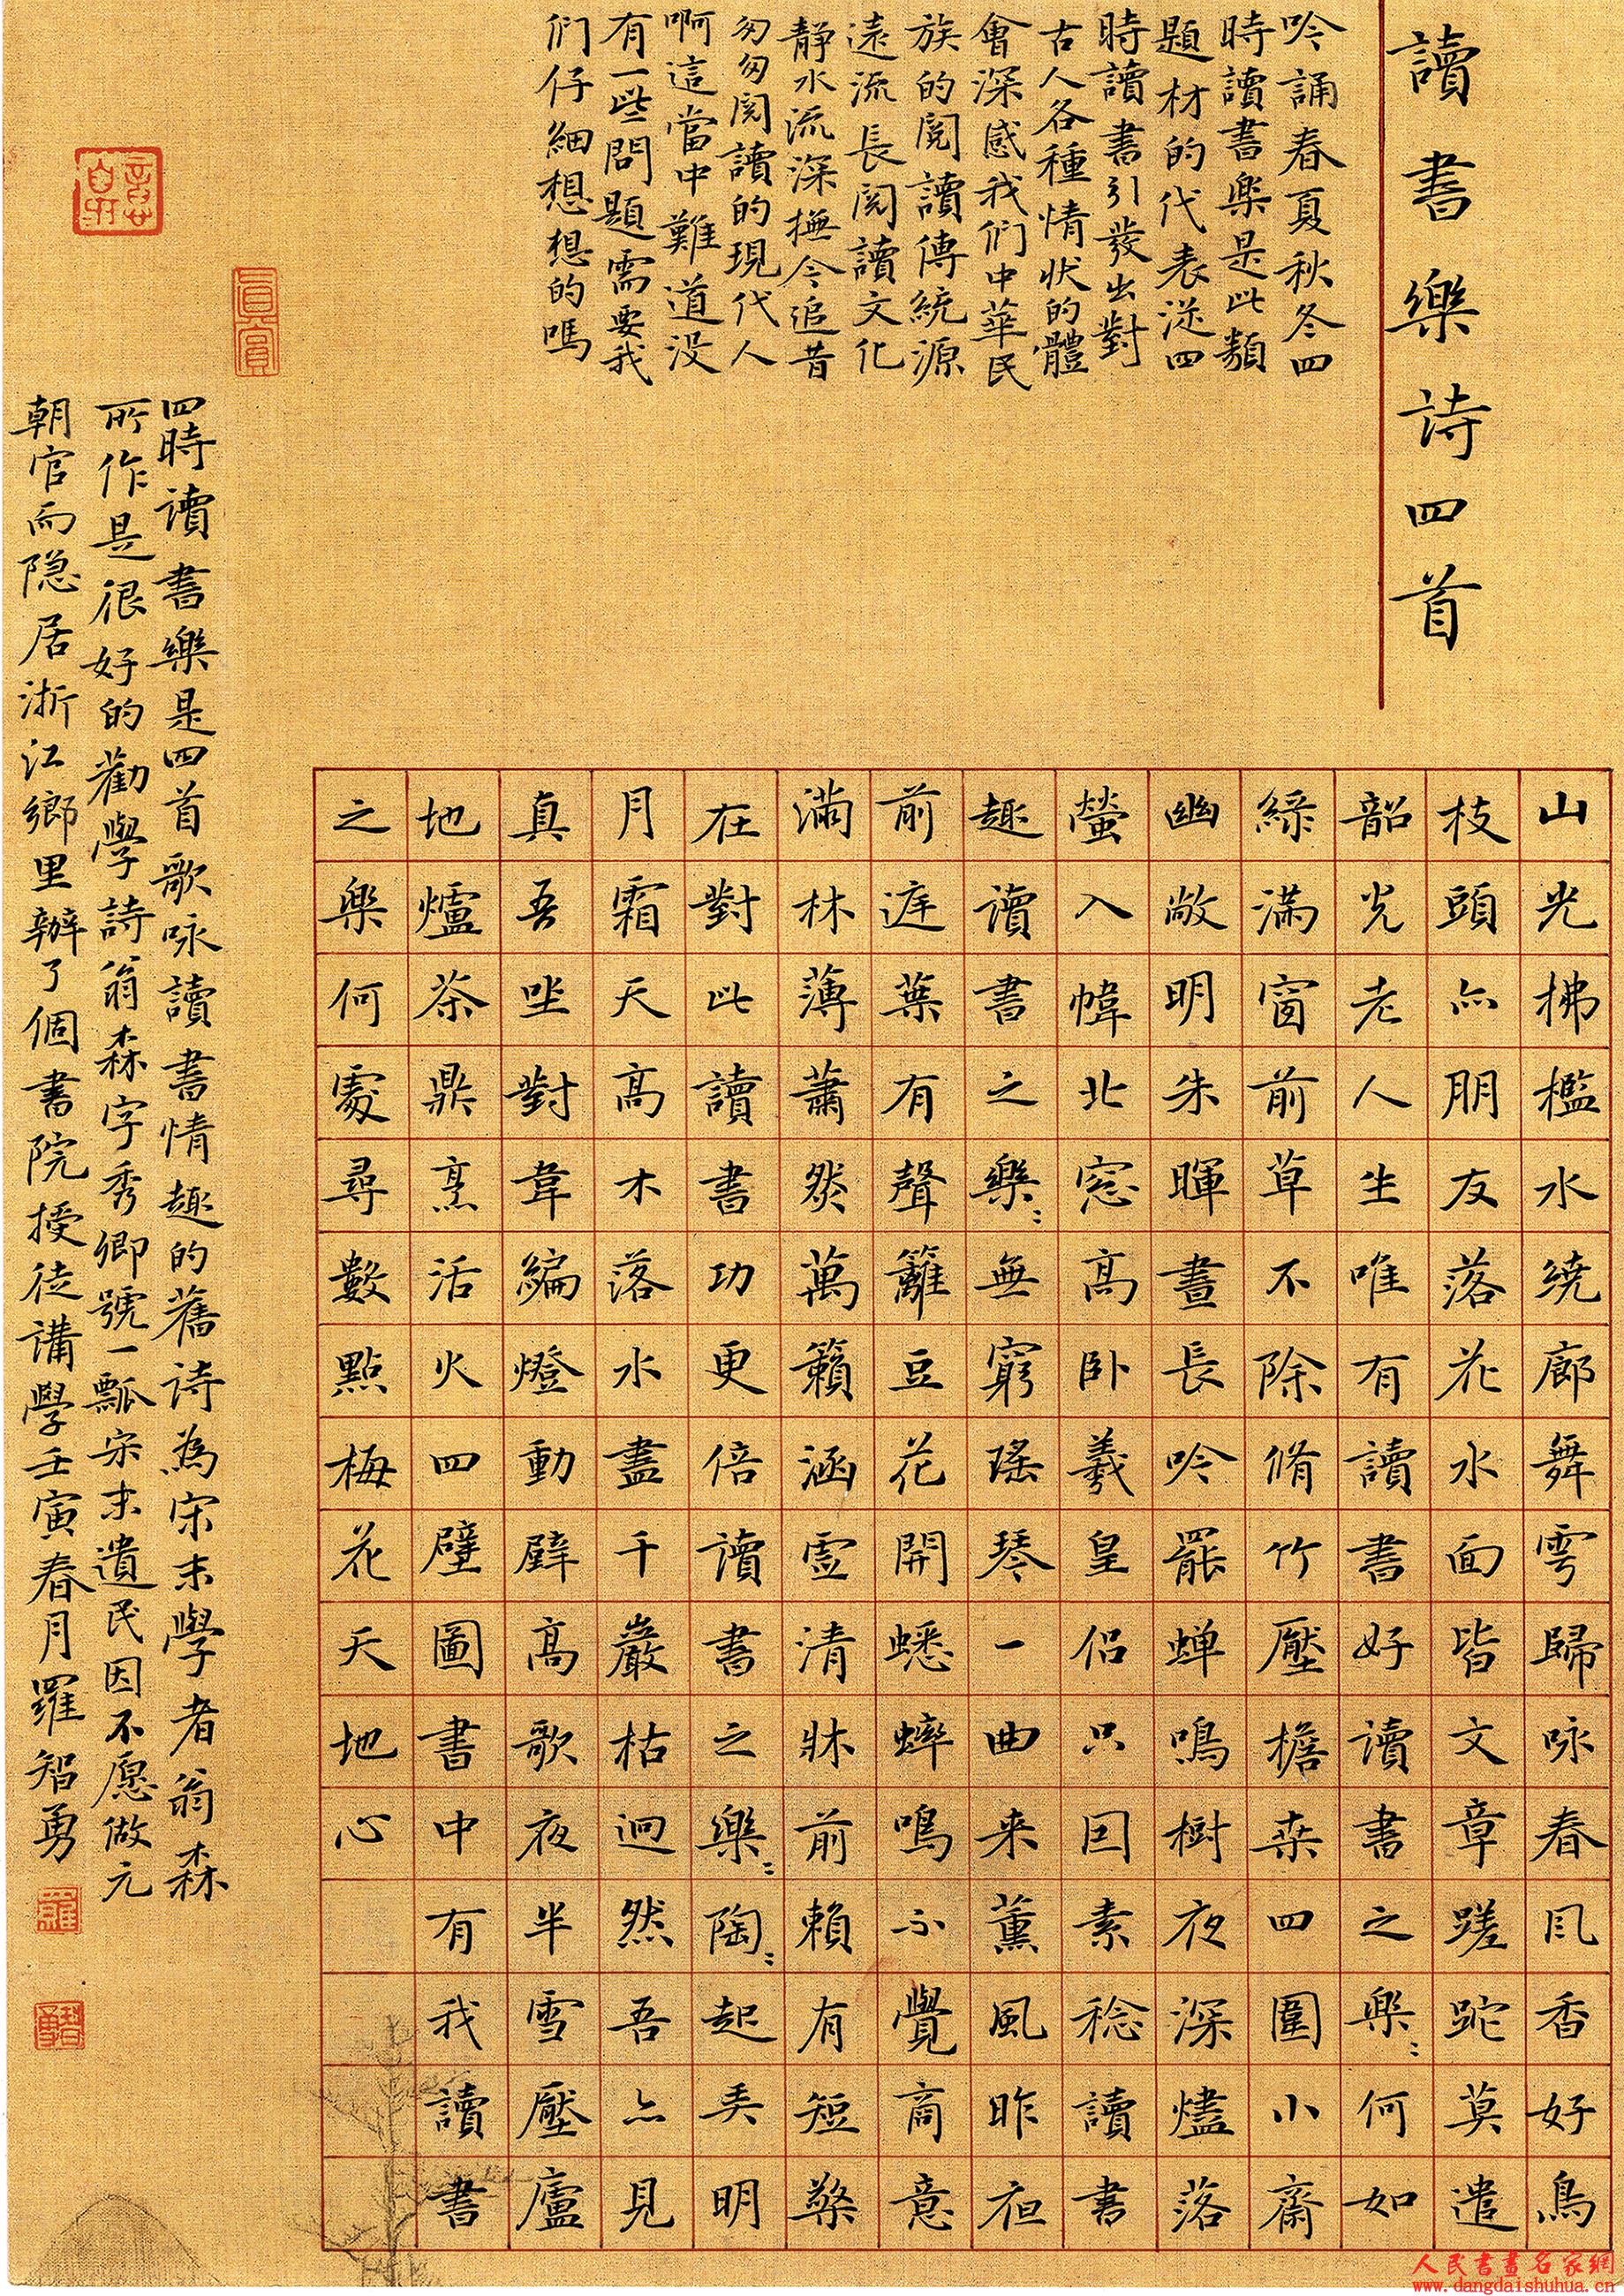 讀書樂詩四首
吟誦春夏秋冬四
時讀書樂是此類
題材的代表从四
時讀書引發出對
古人各種情状的體
會深感我们中華民
族的閱讀傳統源
遠流長閱讀文化
静水流深撫今追昔
匆匆閱讀的現代人
啊這當中難道没
有一些問題需要我
们仔細想想的嗎
山光拂檻水绕廊舞雩歸咏春风香好鳥
枝頭亦朋友落花水面皆文章蹉跎莫遣
韶光老人生唯有讀書好讀書之樂:何如
綠滿窗前草不除脩竹壓檐桑四圍小齋
幽敞明朱暉晝長吟罷蝉鳴樹夜深燼落
螢入幃北窓高卧羲皇侣只因素稔讀書
趣讀書之樂:無窮瑤琴一曲来薰風昨夜
前庭葉有聲籬豆花開蟋蟀鳴不覺商意
滿林薄蕭然萬籟涵虚清牀前賴有短檠
在對此讀書功更倍讀書之樂:陶:起弄明
月霜天高木落水盡千巖枯迥然吾亦見
真吾坐對韋編燈動壁高歌夜半雪壓廬
地爐茶鼎烹活火四壁圖書中有我讀書
之樂何處尋數點梅花天地心
四時讀書樂是四首歌咏讀書情趣的舊诗為宋末學者翁森
所作是很好的勸學詩翁森字秀卿號一瓢宋末遺民因不愿做元
朝官而隐居浙江鄉里辦了個書院授徒講學壬寅春月羅智勇
羅
智勇
人民書畫名家網
www.dangdaishuhua.cn